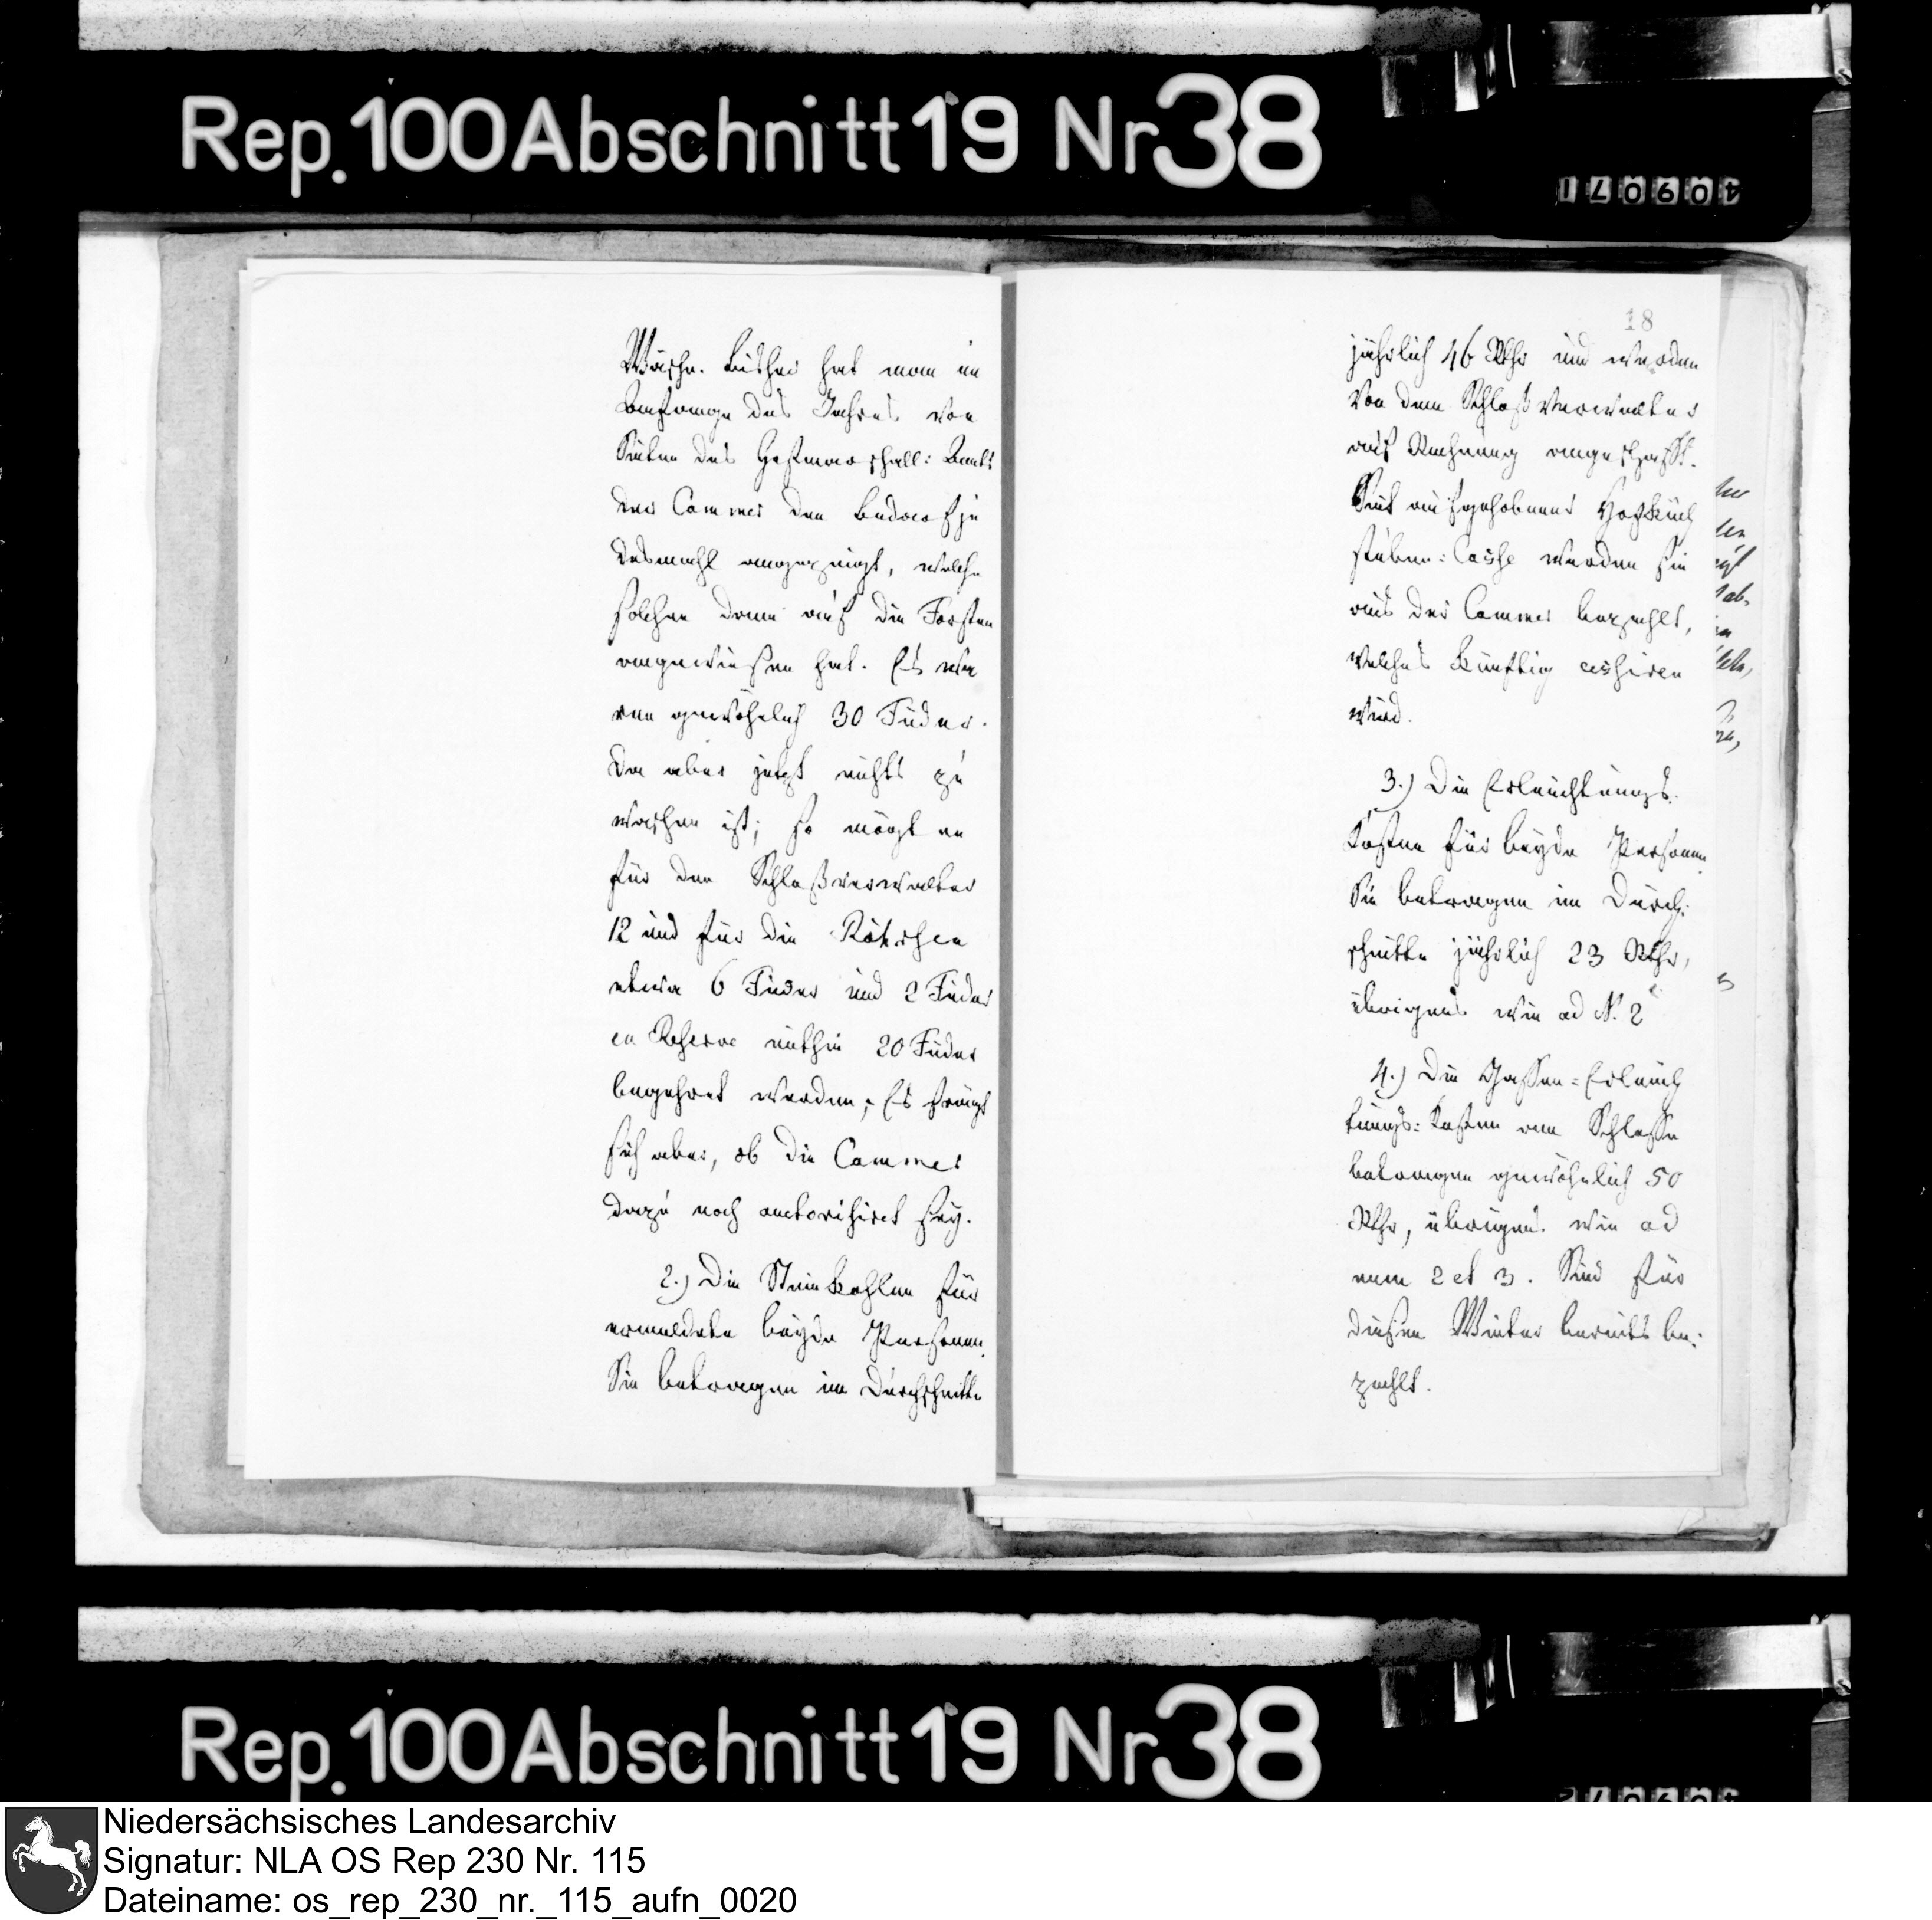 Rep. 100 Abschnitt 19 Nr 38
18
Wäsche. Bisher hat man im
Anfange des Jahres von
Seiten des Hofmarschall: Amts
der Cammer den Bedarf je
desmahl angezeigt, welche
solchen dann auf die Forsten
angewiesen hat. Es wa
ren gewöhnlich 30 Fuder.
Da aber jetzt nichts zu
waschen ist; so mögten
für den Schloßverwalter
12 und für die Rötschen
etwa 6 Fuder und 2 Fuder
en Reserve mithin 20 Fuder
begehret werden; Es frägt
sich aber, ob die Cammer
dazu noch autorisiret sey.
2.) Die Steinkohlen für
ermeldete beyde Personen.
Sie betragen im Durchschnitte
jährlich 46 Rthr und werden
von dem Schloßverwalter
auf Rechnung angeschafft.
Seit aufgehobener Hofküch
stuben: Casse werden sie
aus der Cammer bezahlt,
welches künftig cessiren
wird.
3.) Die Erleuchtungs.
Kosten für beyde Personen.
Sie betragen im Durch:
schnitte jährlich 23 Rthr,
übrigens wie ad N. 2
4.) Die Gassen=Erleuch
tungs: Kosten am Schlosse
betragen gewöhnlich 50
Rthr, übrigens wie ad
num 2 et 3. Sind für
diesen Winter bereits be:
zahlt.
Rep. 100 Abschnitt 19 Nr 38
Niedersächsisches Landesarchiv
Signatur: NLA OS Rep 230 Nr. 115
Dateiname: os_rep_230_nr._115_aufn_0020